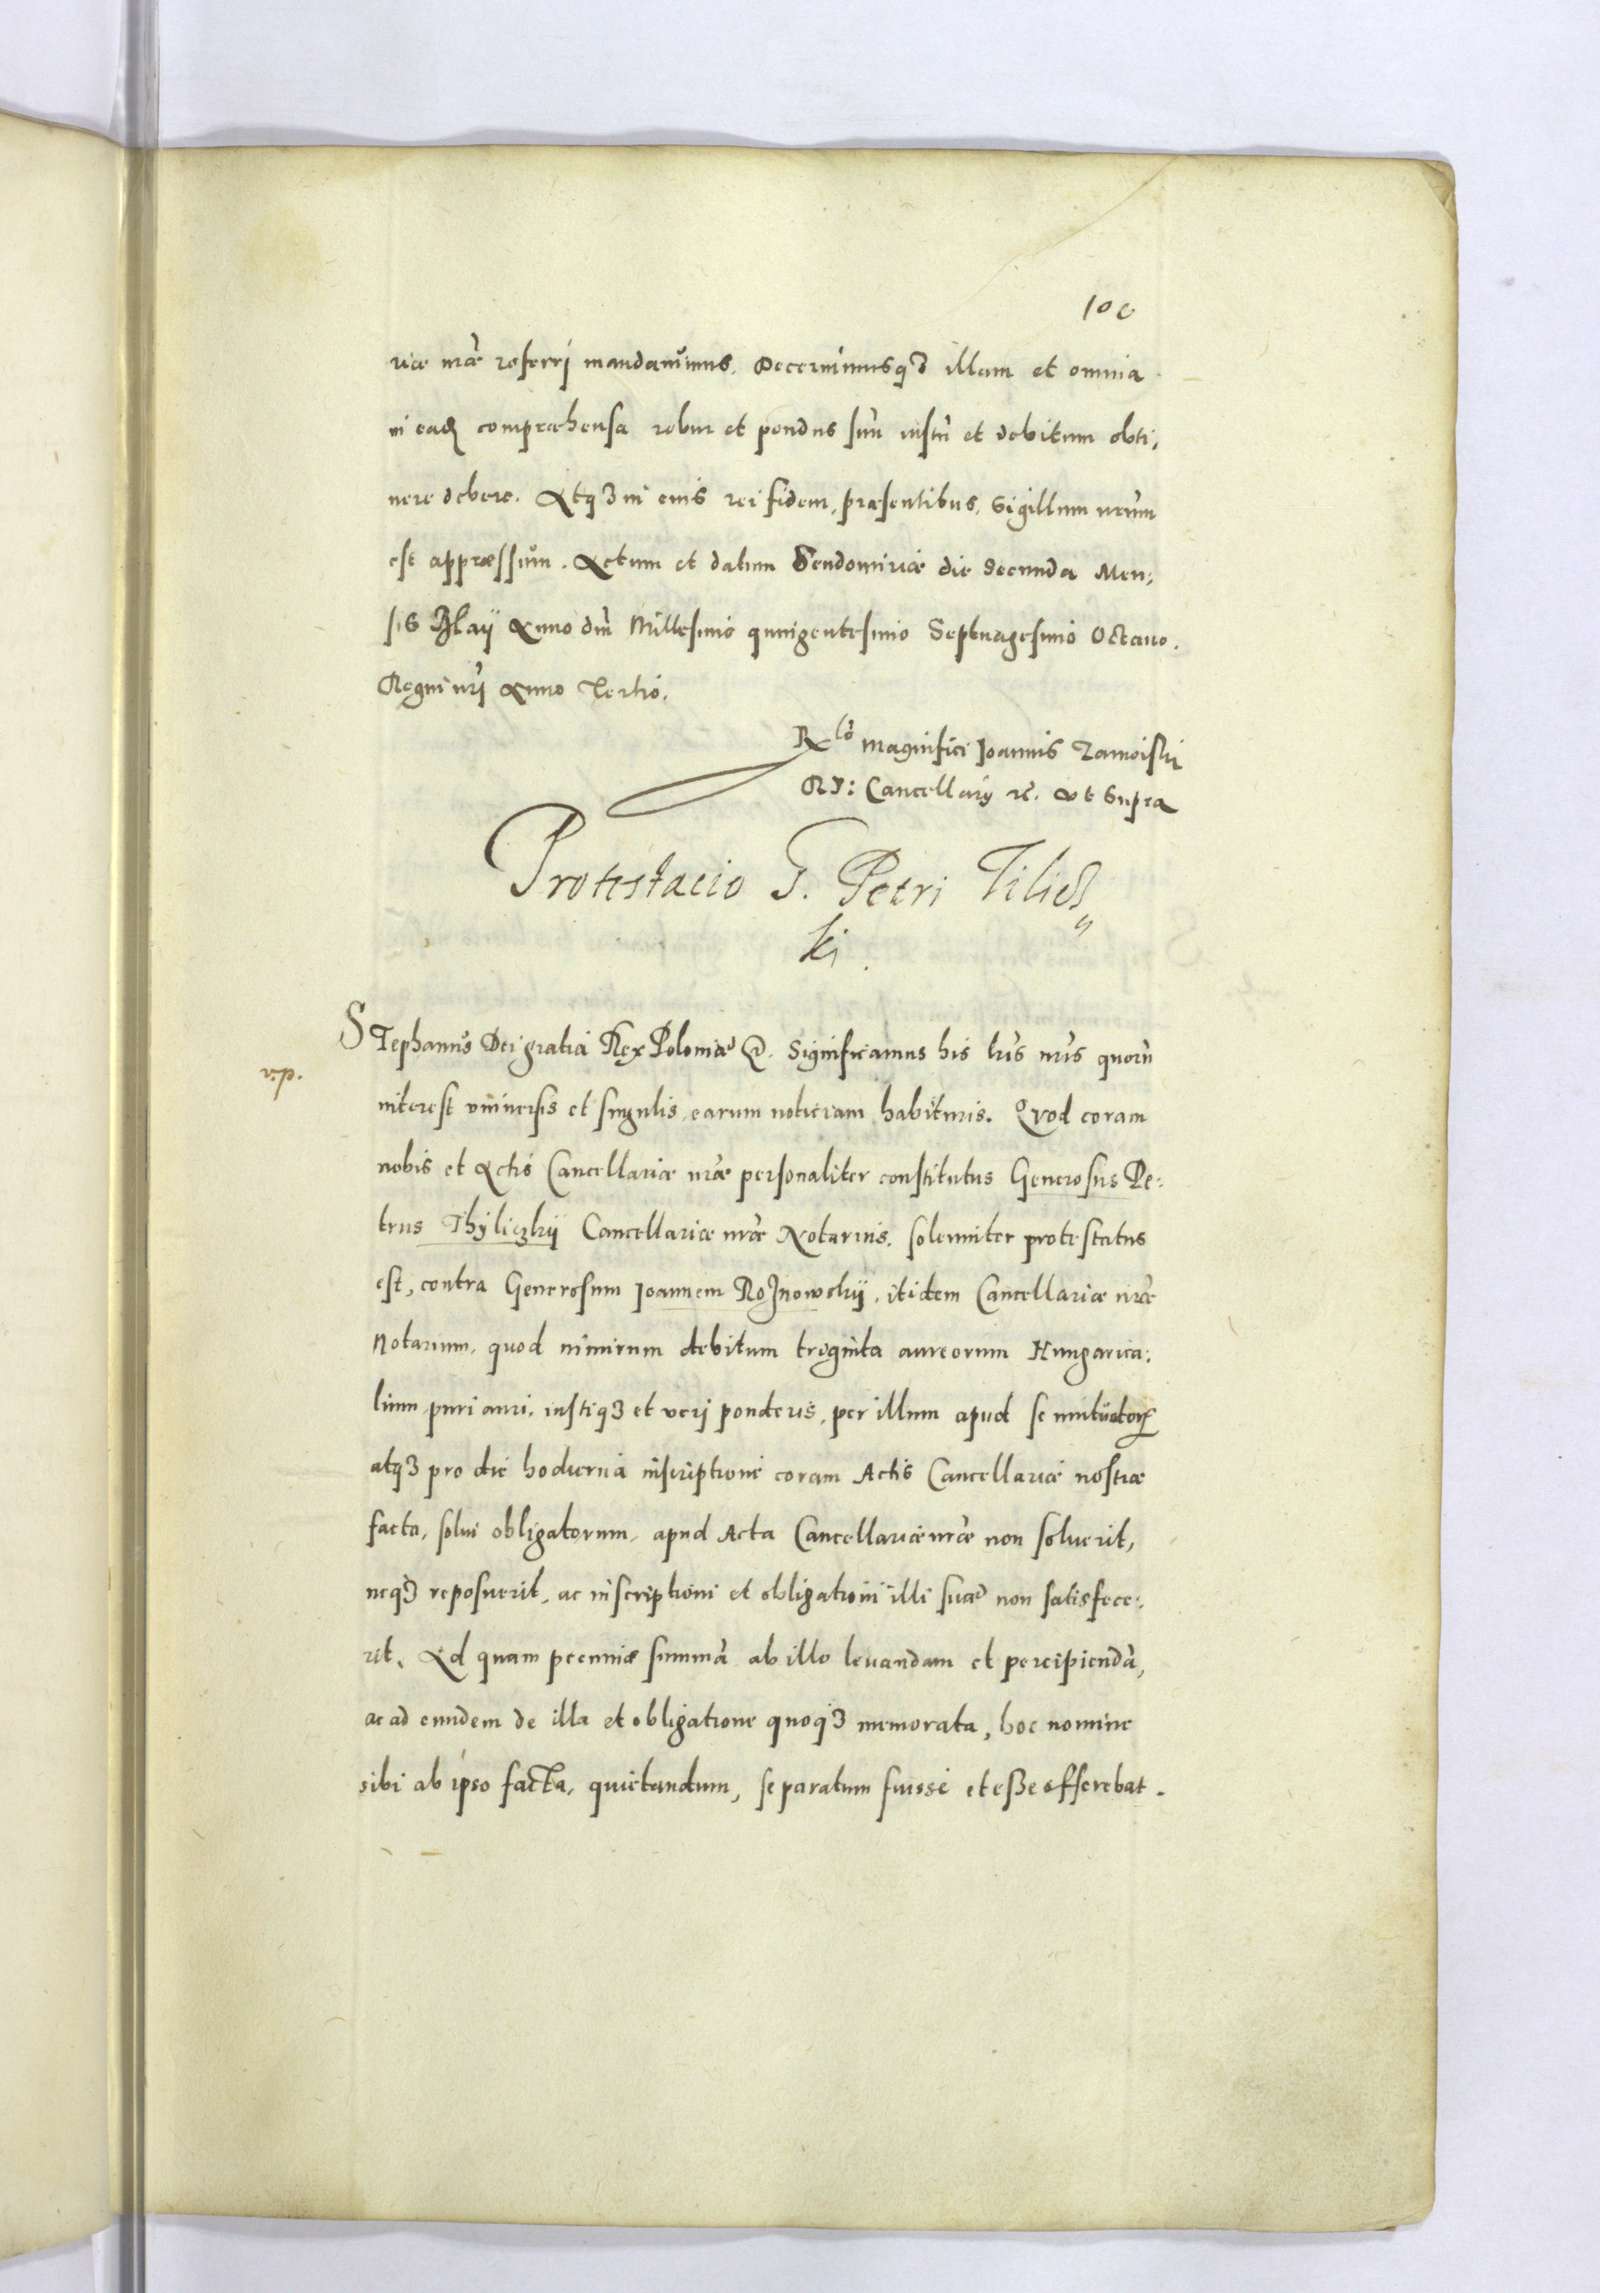 10c
riæ nr̃æ referri mandauimus. Decernimusq3 illam et omnia
in eadẽ compræhensa robur et pondus suũ iustũ et debitum obti,
nere debere. Atq3 in cuius rei fidem, præsentibus, Sigillum nr̃um
est appræssum. Actum et datum Sendomiriæ die Secunda Men,
sis Maij Anno dñi Millesimo quingentesimo Septuagesimo Octauo.
Regni nr̃j Anno Tertio.
Rela͠o Magnifici Joannis Zamoiski
RP: Cancellarij rc̃. vt Supra
Protestacio G. Petri Tilics
ki
STephanus Dei gratia Rex Poloniæ &. Significamus his lrĩs nrĩs quorũ
v.p.
interest vniuersis et singulis, earum noticiam habituris. Quod coram
nobis et Actis Cancellariæ nr̃æ personaliter constitutus Generosus Pe,
trus Thÿliczkij Cancellariæ nr̃æ Notarius, solemniter protestatus
est, contra Generosum Joannem Rożnowskij, itidem Cancellariæ nr̃æ
Notarium, quod nimirum debitum triginta aureorum Hungarica,
lium puri auri, iustiq3 et verj ponderis, per illum apud se mutuatorũ
atq3 pro die hodierna inscriptione coram Actis Cancellariæ nostræ
facta, solui obligatorum, apud Acta Cancellariæ nr̃æ non soluerit,
neq3 reposuerit, ac inscriptioni et obligationi illi suæ non satisfece,
rit. Ad quam pecuniæ summã ab illo leuandam et percipiendã,
ac ad eundem de illa et obligatione quoq3 memorata, hoc nomine
sibi ab ipso facta, quietandum, se paratum fuisse et esse offerebat.